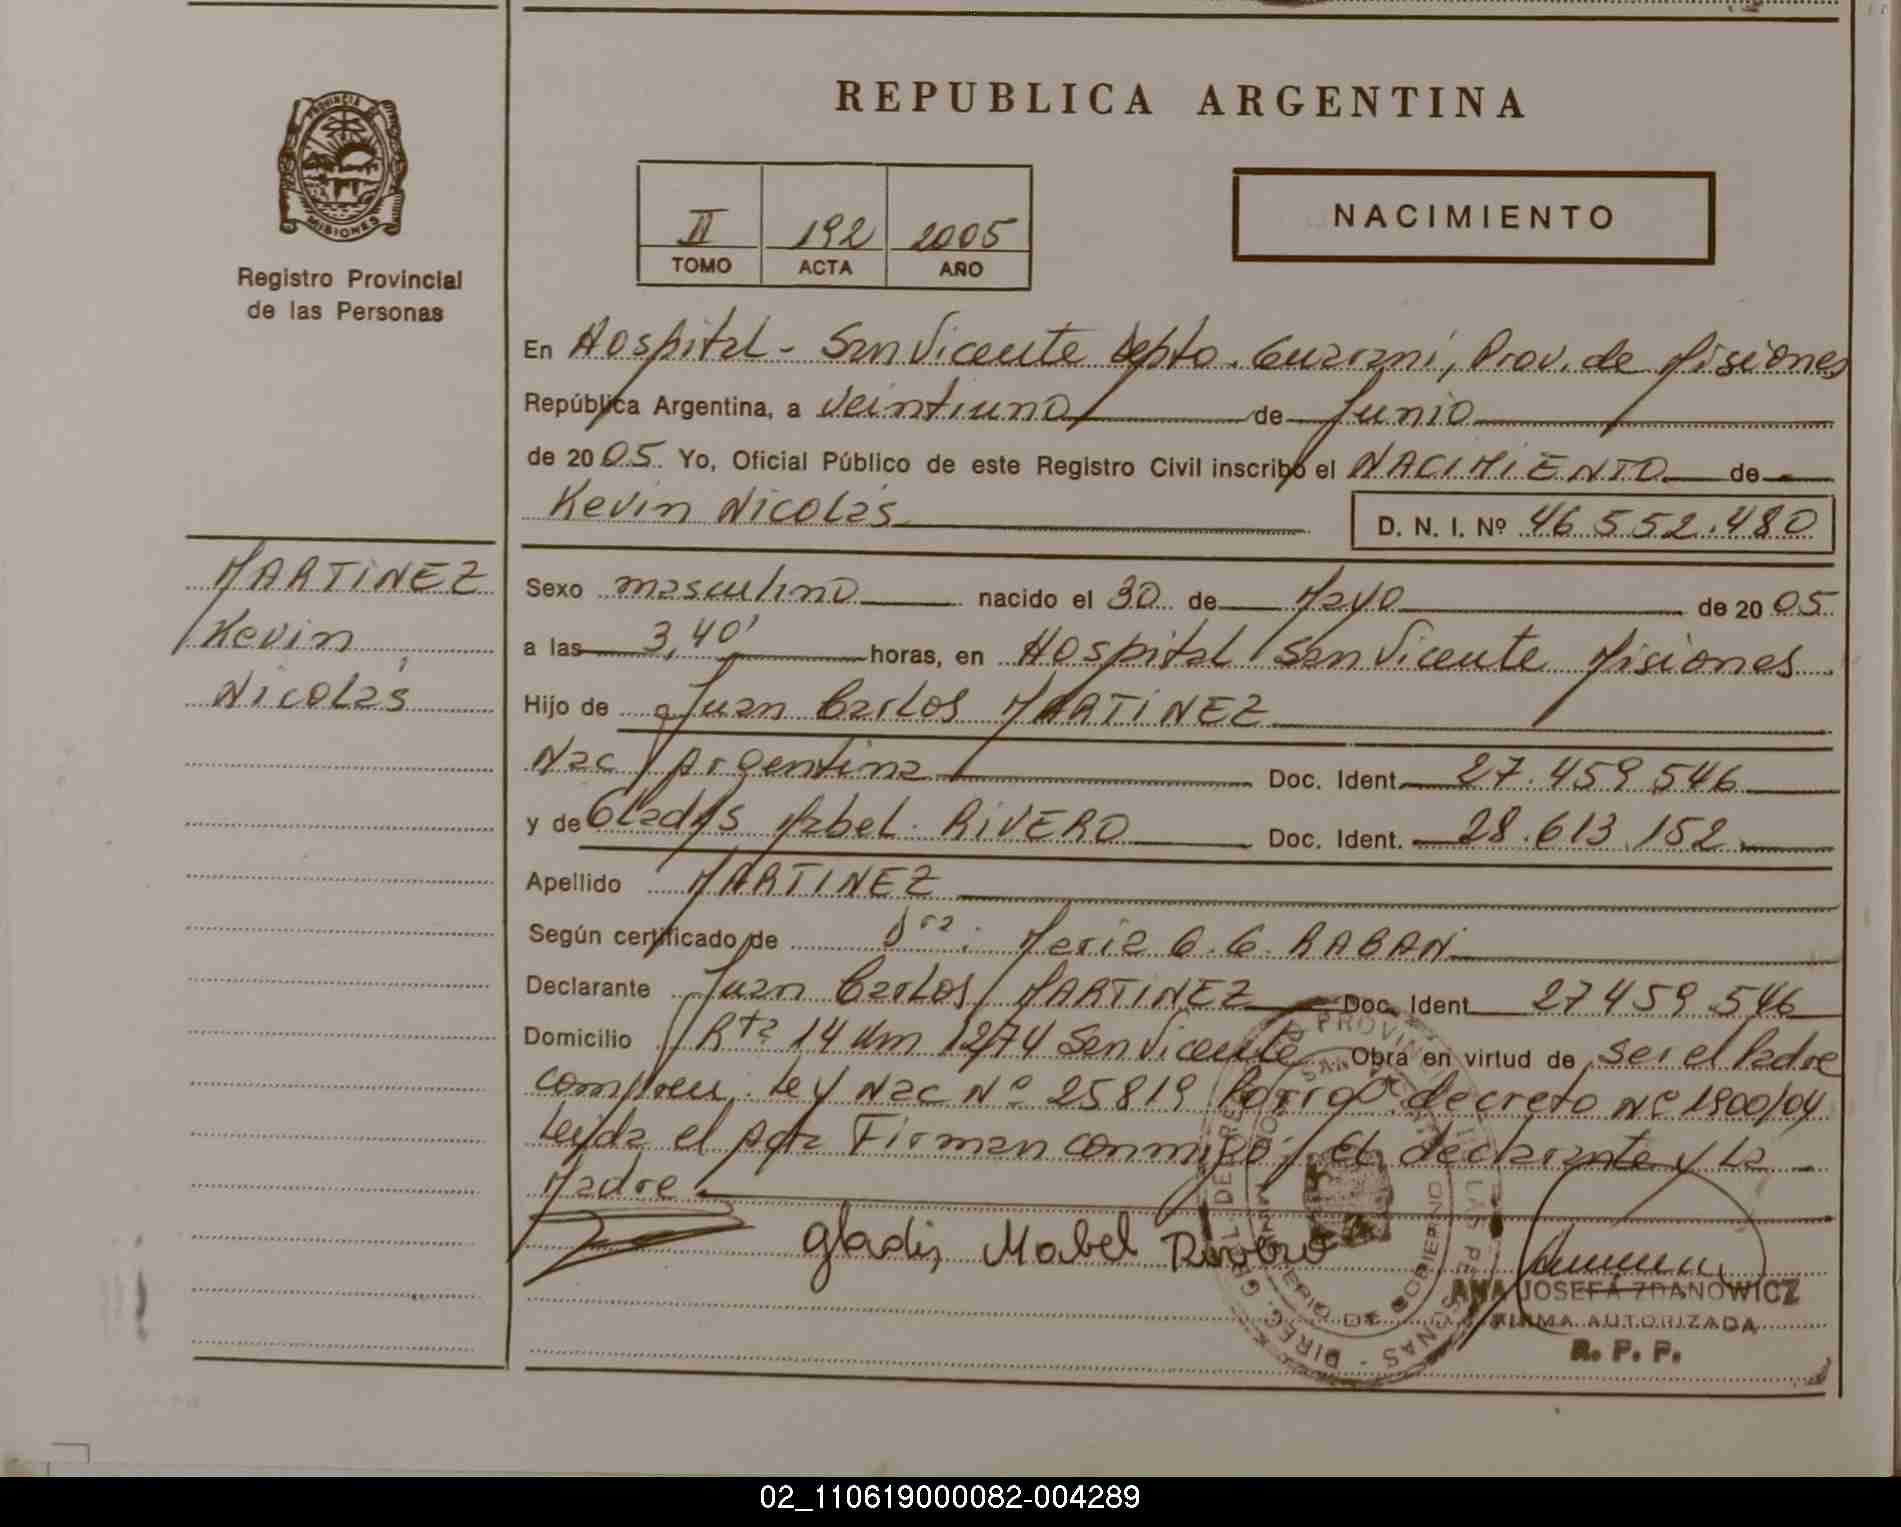 REPUBLICA ARGENTINA
PROVINCIA DE
MISIONES
Registro Provincial
de las Personas
II 192 2005
TOMO ACTA AÑO
NACIMIENTO
En Hospital - San Vicente Depto. Guaraní, Prov. de Misiones
República Argentina, a veintiuno de Junio
de 2005 Yo, Oficial Público de este Registro Civil inscribo el NACIMIENTO de
Kevin Nicolás
D. N. I. Nº 46.552.480
MARTINEZ
Kevin
Nicolás
Sexo masculino nacido el 30 de Mayo de 2005
a las 3,40' horas, en Hospital San Vicente Misiones
Hijo de Juan Carlos MARTINEZ
Nac Argentina Doc. Ident. 27.459.546
y de Gladys Mabel RIVERO Doc. Ident. 28.613.152
Apellido MARTINEZ
Según certificado de Dra. Maria G. G. RABAN
Declarante Juan Carlos MARTINEZ Doc. Ident. 27459.546
Domicilio Rta 14 Km 1274 San Vicente Obra en virtud de ser el Padre
Ley Nac Nº 25819 decreto Nº 1900/04
Leída el Acta Firman conmigo; el declarante y La
Madre
Gladis Mabel Rivero
ANA JOSEFA ZDANOWICZ
FIRMA AUTORIZADA
R. P. P.
02_110619000082-004289